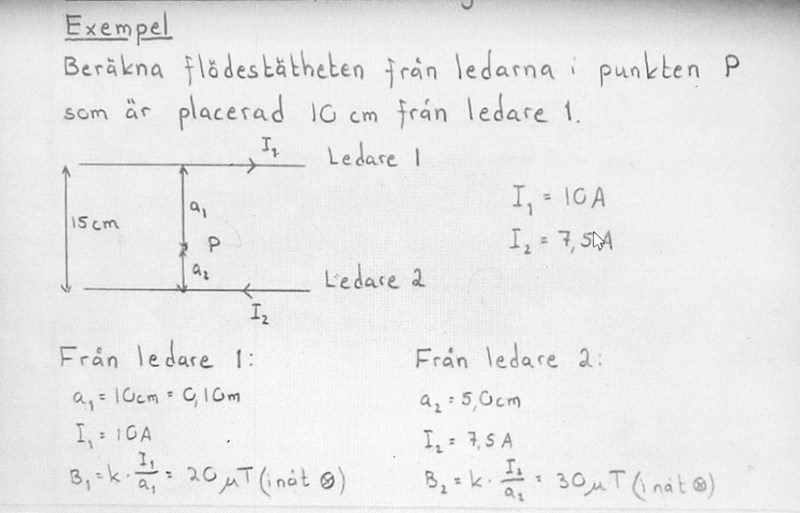 Exempel
Beräkna flödestätheten från ledarna i punkten P
som är placerad 10 cm från ledare 1.
I₁ Ledare 1
15cm
a₁
P
a₂
I₁ = 10A
I₂ = 7,5A
Ledare 2
I₂
Från ledare 1:
a₁ = 10cm = 0,10m
I₁ = 10A
B₁ = k · I₁/a₁ = 20μT (inåt ⊗)
Från ledare 2:
a₂ = 5,0cm
I₂ = 7,5A
B₂ = k · I₂/a₂ = 30μT (inåt ⊗)